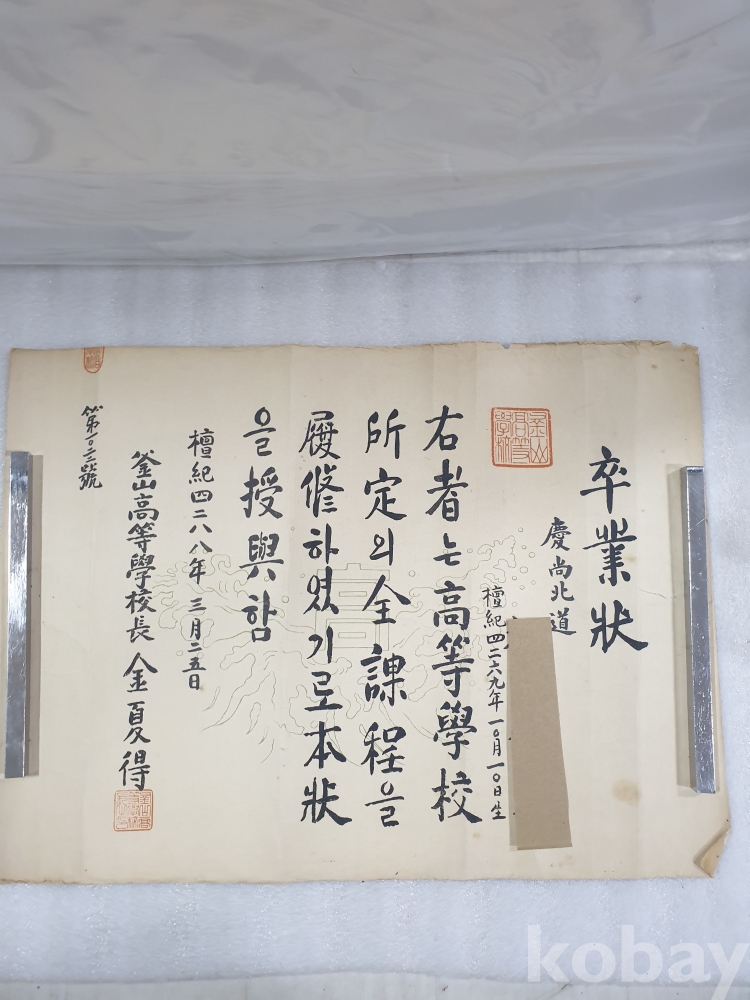 卒業狀
慶尚北道
檀紀四二六九年一〇月一〇日生
釜山高等學校
右者는高等學校
所定의全課程을
履修하였기로本狀
을授與함
檀紀四二八八年 三月二五日
釜山高等學校長 金夏得
高
kobay